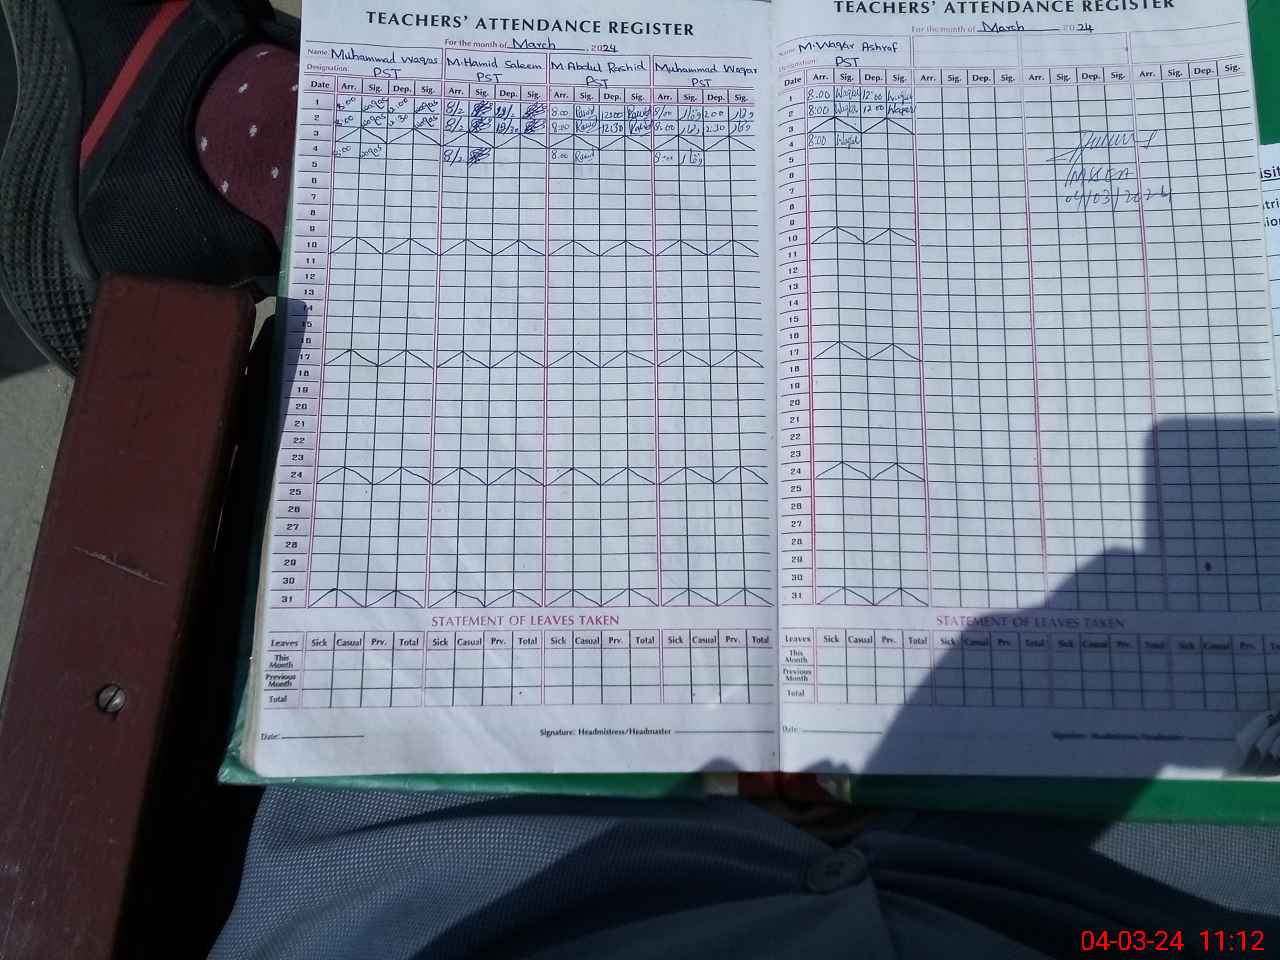 TEACHERS' ATTENDANCE REGISTER
For the month of March, 2024
Name: Muhammad Waqas M.Hamid Saleem M.Abdul Rashid Muhammad Waqar
Designation: PST PST PST PST
Date Arr. Sig. Dep. Sig. Arr. Sig. Dep. Sig. Arr. Sig. Dep. Sig. Arr. Sig. Dep. Sig.
1 8:00 Waqas 8:00 Rashid 12:00 Rashid 8/00 وقار وقار
2 8:00 Waqas 8:00 Rashid 12:30 Rashid 8:00 وقار 12:30 وقار
3
4 8:00 Waqas 8:00 Rashid 8:00 وقار
5
6
7
8
9
10
11
12
13
14
15
16
17
18
19
20
21
22
23
24
25
26
27
28
29
30
31
STATEMENT OF LEAVES TAKEN
Leaves Sick Casual Prv. Total Sick Casual Prv. Total Sick Casual Prv. Total Sick Casual Prv. Total
This Month
Previous Month
Total
Date: Signature: Headmistress/Headmaster
TEACHERS' ATTENDANCE REGISTER
For the month of March 2024
Name: M.Waqar Ashraf
Designation: PST
Date Arr. Sig. Dep. Sig. Arr. Sig. Dep. Sig. Arr. Sig. Dep. Sig. Arr. Sig. Dep. Sig.
1 8:00 Waqar 12:00 Waqar
2 8:00 Waqar 12:00 Waqar
3
4 8:00 Waqar
5
6
7
8
9
10
11
12
13
14
15
16
17
18
19
20
21
22
23
24
25
26
27
28
29
30
31
04/03/2024
STATEMENT OF LEAVES TAKEN
Leaves Sick Casual Prv. Total Sick Casual Prv. Total Sick Casual Prv. Total Sick Casual Prv.
This Month
Previous Month
Total
Date: Signature: Headmistress/Headmaster
04-03-24 11:12